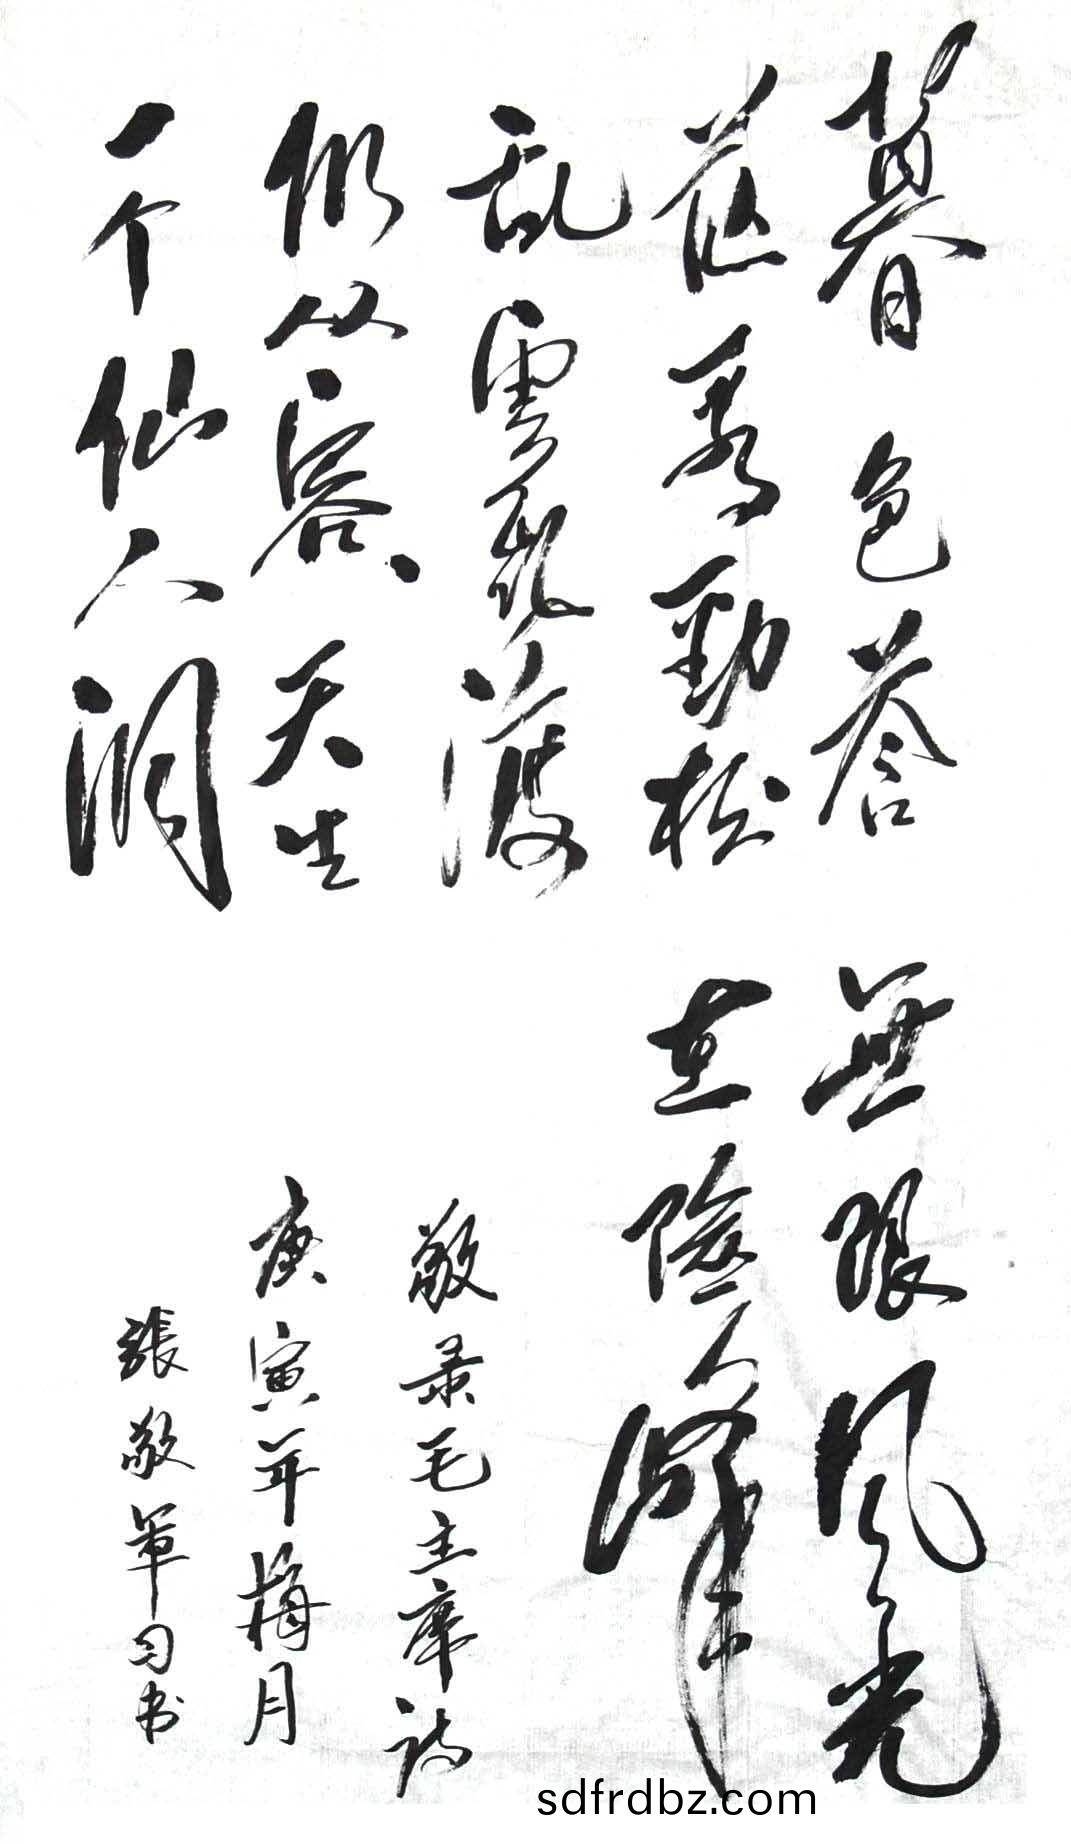 暮色苍
茫看劲松
乱雲飛渡
仍从容、天生
一个仙人洞
無限风光
在險峰
敬录毛主席诗
庚寅年梅月
張敬軍习书
sdfrdbz.com